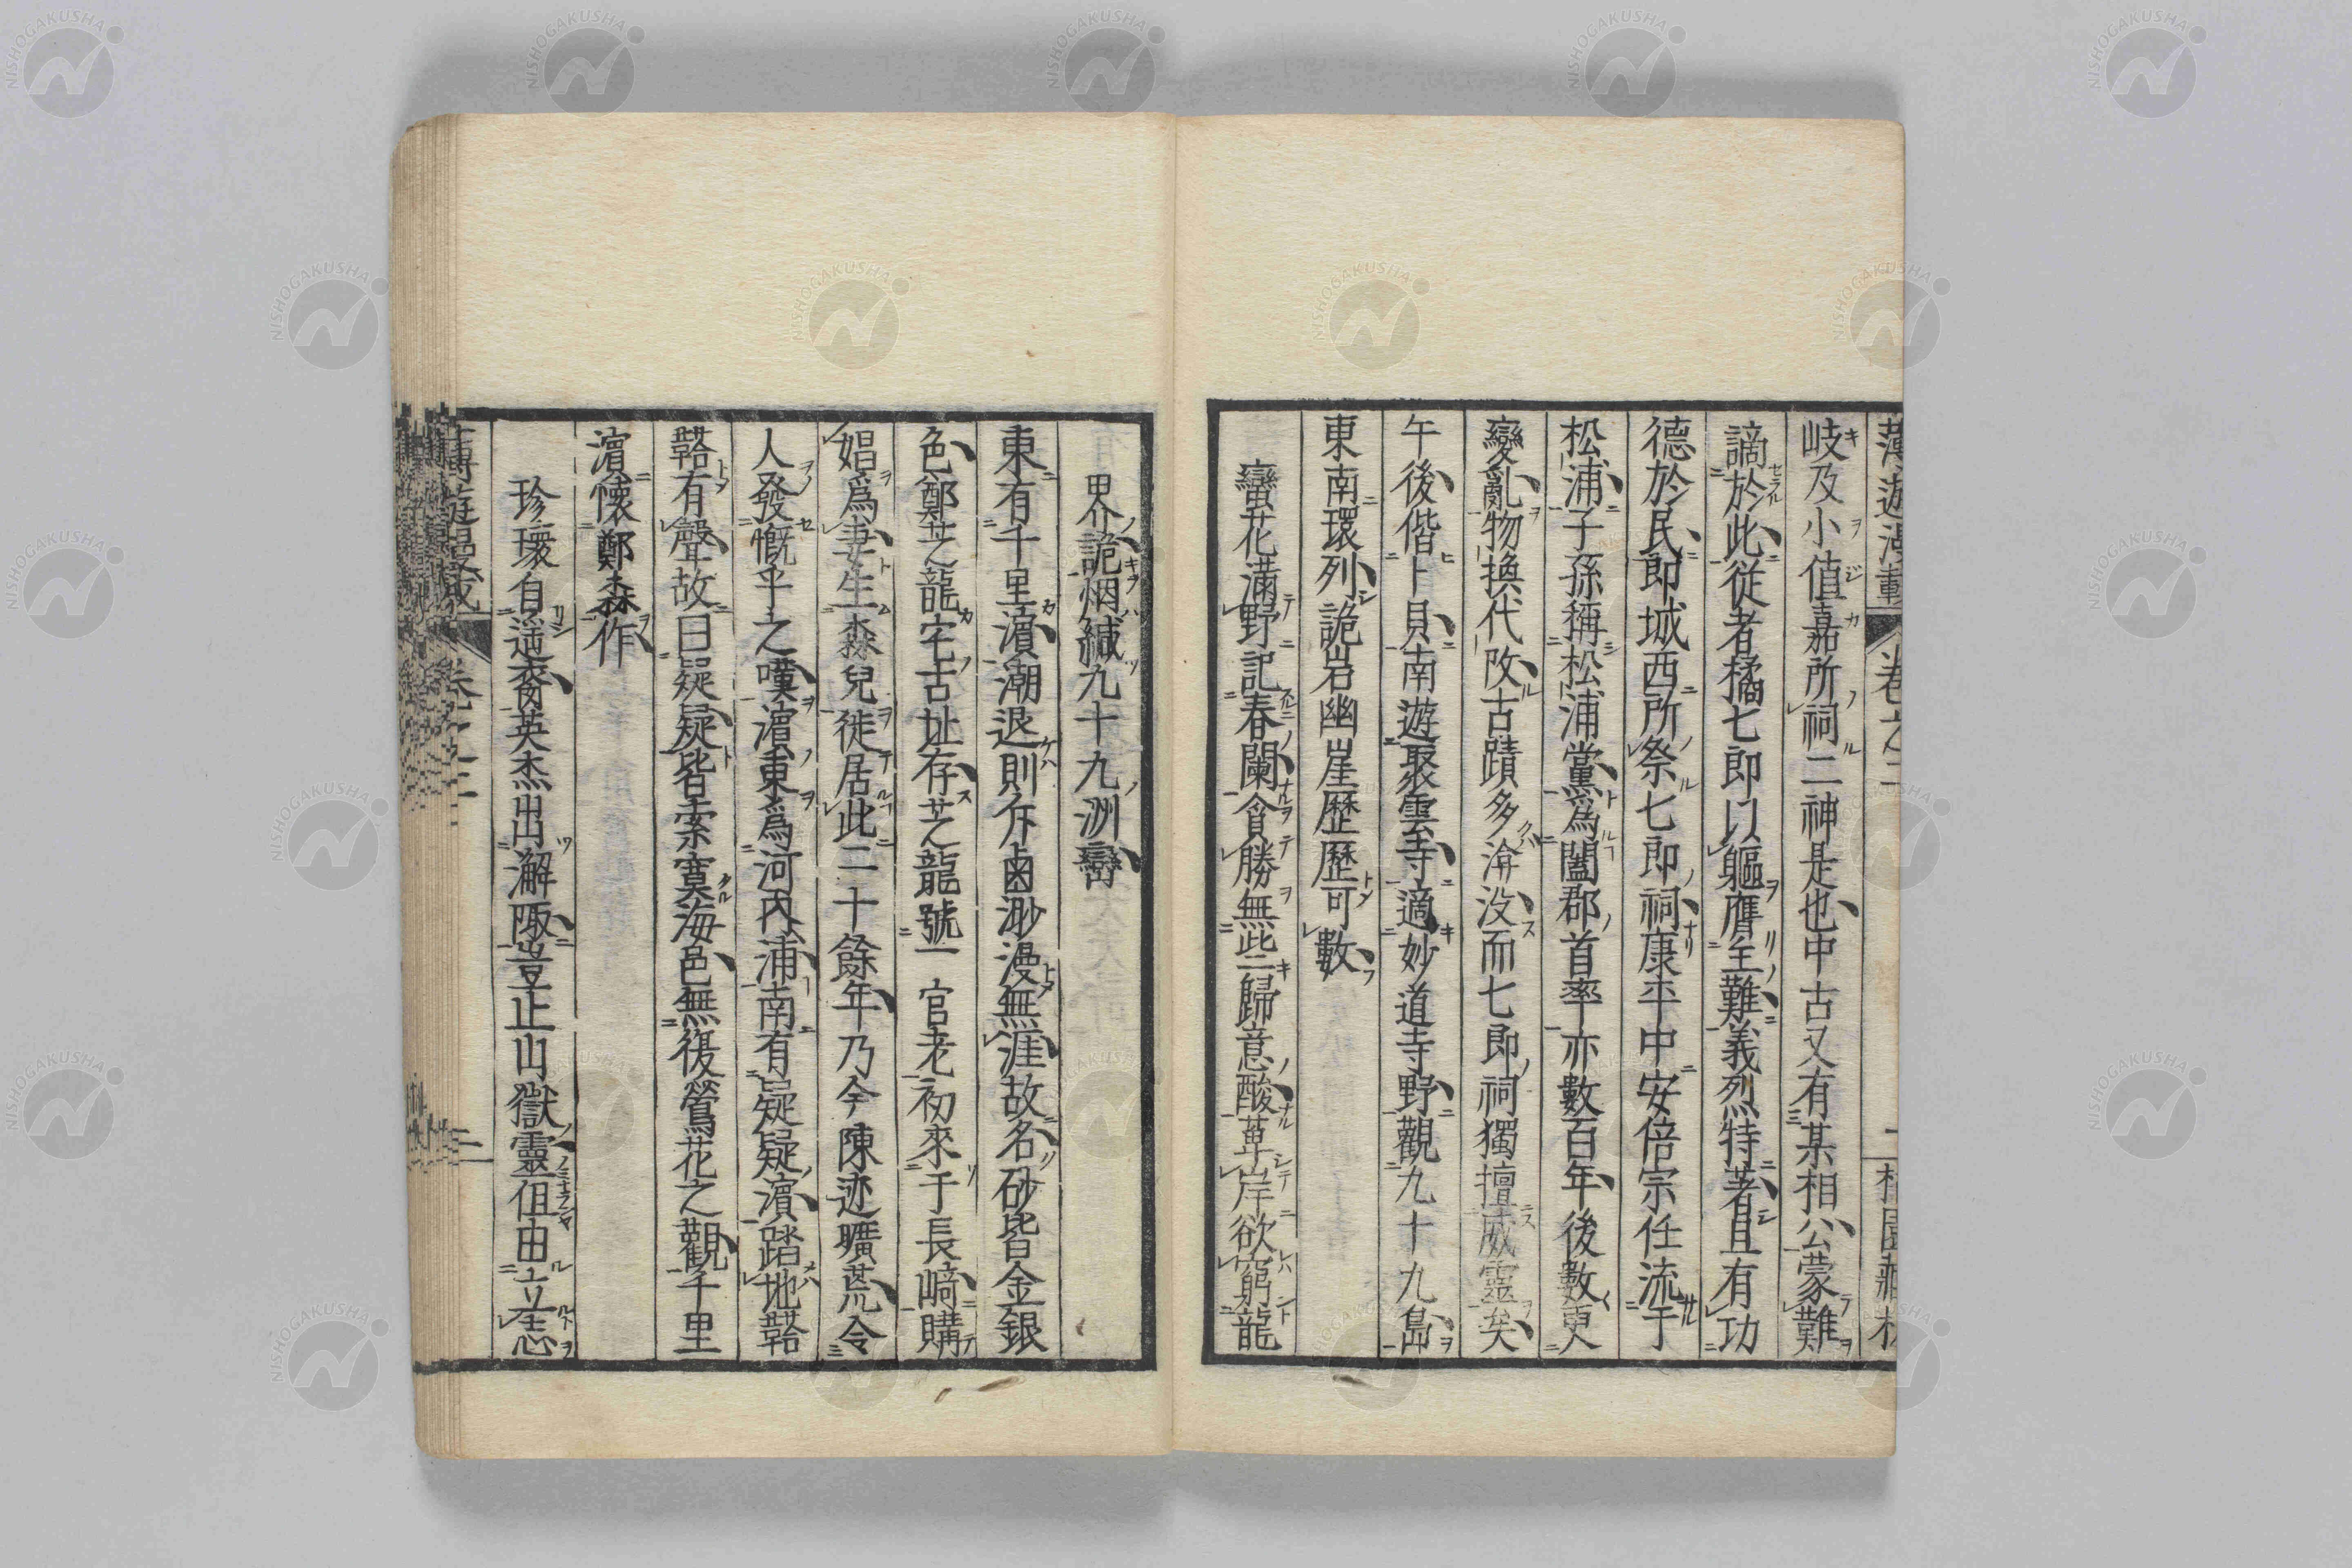 薄遊漫載 卷之二 二
岐及小值嘉所祠二神是也中古又有某相公蒙難
謫於此從者橘七郎以軀膺主難義烈特著且有功
德於民郎城西所祭七郎祠康平中安倍宗任流于
松浦子孫稱松浦黨爲闔郡首率亦數百年後數更
變亂物換代改古蹟多渰没而七郎祠獨擅威靈矣
午後偕卜貝南遊聚雲寺適妙道寺野觀九十九島
東南環列詭岩幽崖歷歷可數
蠻花滿野記春闌貪勝無些歸意酸草岸欲窮龍
界詭烟緘九十九洲巒
東有千里濵潮退則斥鹵渺漫無涯故名砂皆金銀
色鄭芝龍宅古址存芝龍號一官老初來于長﨑購
娼爲妻生森兒徙居此二十餘年乃今陳迹曠荒令
人發慨乎之嘆濵東爲河内浦南有疑疑濵踏地鞳
鞳有聲故曰疑疑皆索寞海邑無復鶯花之觀千里
濵懷鄭森作
珍瓌自遥裔英杰出澥陬豈止山獄靈伹由立志